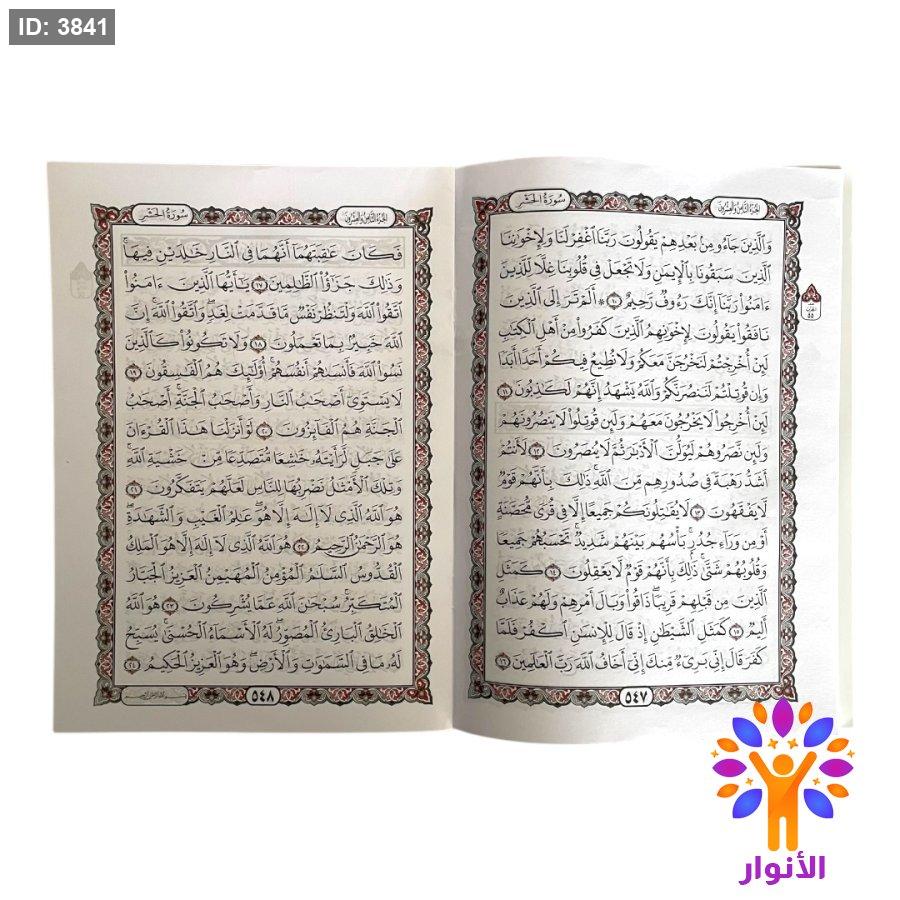 ID: 3841
سُورَةُ الحَشْرِ
الجُزءُ الثَّامِنُ وَالعِشْرُونَ
وَٱلَّذِينَ جَآءُو مِنۢ بَعۡدِهِمۡ يَقُولُونَ رَبَّنَا ٱغۡفِرۡ لَنَا وَلِإِخۡوَٰنِنَا
ٱلَّذِينَ سَبَقُونَا بِٱلۡإِيمَٰنِ وَلَا تَجۡعَلۡ فِي قُلُوبِنَا غِلّٗا لِّلَّذِينَ
ءَامَنُواْ رَبَّنَآ إِنَّكَ رَءُوفٞ رَّحِيمٌ ١٠ ۞ أَلَمۡ تَرَ إِلَى ٱلَّذِينَ
نَافَقُواْ يَقُولُونَ لِإِخۡوَٰنِهِمُ ٱلَّذِينَ كَفَرُواْ مِنۡ أَهۡلِ ٱلۡكِتَٰبِ
لَئِنۡ أُخۡرِجۡتُمۡ لَنَخۡرُجَنَّ مَعَكُمۡ وَلَا نُطِيعُ فِيكُمۡ أَحَدًا أَبَدٗا
وَإِن قُوتِلۡتُمۡ لَنَنصُرَنَّكُمۡ وَٱللَّهُ يَشۡهَدُ إِنَّهُمۡ لَكَٰذِبُونَ ١١
لَئِنۡ أُخۡرِجُواْ لَا يَخۡرُجُونَ مَعَهُمۡ وَلَئِن قُوتِلُواْ لَا يَنصُرُونَهُمۡ
وَلَئِن نَّصَرُوهُمۡ لَيُوَلُّنَّ ٱلۡأَدۡبَٰرَ ثُمَّ لَا يُنصَرُونَ ١٢ لَأَنتُمۡ
أَشَدُّ رَهۡبَةٗ فِي صُدُورِهِم مِّنَ ٱللَّهِۚ ذَٰلِكَ بِأَنَّهُمۡ قَوۡمٞ
لَّا يَفۡقَهُونَ ١٣ لَا يُقَٰتِلُونَكُمۡ جَمِيعًا إِلَّا فِي قُرٗى مُّحَصَّنَةٍ
أَوۡ مِن وَرَآءِ جُدُرِۭۚ بَأۡسُهُم بَيۡنَهُمۡ شَدِيدٞۚ تَحۡسَبُهُمۡ جَمِيعٗا
وَقُلُوبُهُمۡ شَتَّىٰۚ ذَٰلِكَ بِأَنَّهُمۡ قَوۡمٞ لَّا يَعۡقِلُونَ ١٤ كَمَثَلِ
ٱلَّذِينَ مِن قَبۡلِهِمۡ قَرِيبٗاۖ ذَاقُواْ وَبَالَ أَمۡرِهِمۡ وَلَهُمۡ عَذَابٌ
أَلِيمٞ ١٥ كَمَثَلِ ٱلشَّيۡطَٰنِ إِذۡ قَالَ لِلۡإِنسَٰنِ ٱكۡفُرۡ فَلَمَّا
كَفَرَ قَالَ إِنِّي بَرِيٓءٞ مِّنكَ إِنِّيٓ أَخَافُ ٱللَّهَ رَبَّ ٱلۡعَٰلَمِينَ ١٦
٥٤٧
سُورَةُ الحَشْرِ
الجُزءُ الثَّامِنُ وَالعِشْرُونَ
فَكَانَ عَٰقِبَتَهُمَآ أَنَّهُمَا فِي ٱلنَّارِ خَٰلِدَيۡنِ فِيهَاۚ
وَذَٰلِكَ جَزَٰٓؤُاْ ٱلظَّٰلِمِينَ ١٧ يَٰٓأَيُّهَا ٱلَّذِينَ ءَامَنُواْ
ٱتَّقُواْ ٱللَّهَ وَلۡتَنظُرۡ نَفۡسٞ مَّا قَدَّمَتۡ لِغَدٖۖ وَٱتَّقُواْ ٱللَّهَۚ إِنَّ
ٱللَّهَ خَبِيرُۢ بِمَا تَعۡمَلُونَ ١٨ وَلَا تَكُونُواْ كَٱلَّذِينَ
نَسُواْ ٱللَّهَ فَأَنسَىٰهُمۡ أَنفُسَهُمۡۚ أُوْلَٰٓئِكَ هُمُ ٱلۡفَٰسِقُونَ ١٩
لَا يَسۡتَوِيٓ أَصۡحَٰبُ ٱلنَّارِ وَأَصۡحَٰبُ ٱلۡجَنَّةِۚ أَصۡحَٰبُ
ٱلۡجَنَّةِ هُمُ ٱلۡفَآئِزُونَ ٢٠ لَوۡ أَنزَلۡنَا هَٰذَا ٱلۡقُرۡءَانَ
عَلَىٰ جَبَلٖ لَّرَأَيۡتَهُۥ خَٰشِعٗا مُّتَصَدِّعٗا مِّنۡ خَشۡيَةِ ٱللَّهِۚ
وَتِلۡكَ ٱلۡأَمۡثَٰلُ نَضۡرِبُهَا لِلنَّاسِ لَعَلَّهُمۡ يَتَفَكَّرُونَ ٢١
هُوَ ٱللَّهُ ٱلَّذِي لَآ إِلَٰهَ إِلَّا هُوَۖ عَٰلِمُ ٱلۡغَيۡبِ وَٱلشَّهَٰدَةِۖ
هُوَ ٱلرَّحۡمَٰنُ ٱلرَّحِيمُ ٢٢ هُوَ ٱللَّهُ ٱلَّذِي لَآ إِلَٰهَ إِلَّا هُوَ ٱلۡمَلِكُ
ٱلۡقُدُّوسُ ٱلسَّلَٰمُ ٱلۡمُؤۡمِنُ ٱلۡمُهَيۡمِنُ ٱلۡعَزِيزُ ٱلۡجَبَّارُ
ٱلۡمُتَكَبِّرُۚ سُبۡحَٰنَ ٱللَّهِ عَمَّا يُشۡرِكُونَ ٢٣ هُوَ ٱللَّهُ
ٱلۡخَٰلِقُ ٱلۡبَارِئُ ٱلۡمُصَوِّرُۖ لَهُ ٱلۡأَسۡمَآءُ ٱلۡحُسۡنَىٰۚ يُسَبِّحُ
لَهُۥ مَا فِي ٱلسَّمَٰوَٰتِ وَٱلۡأَرۡضِۖ وَهُوَ ٱلۡعَزِيزُ ٱلۡحَكِيمُ ٢٤
٥٤٨
الأنوار